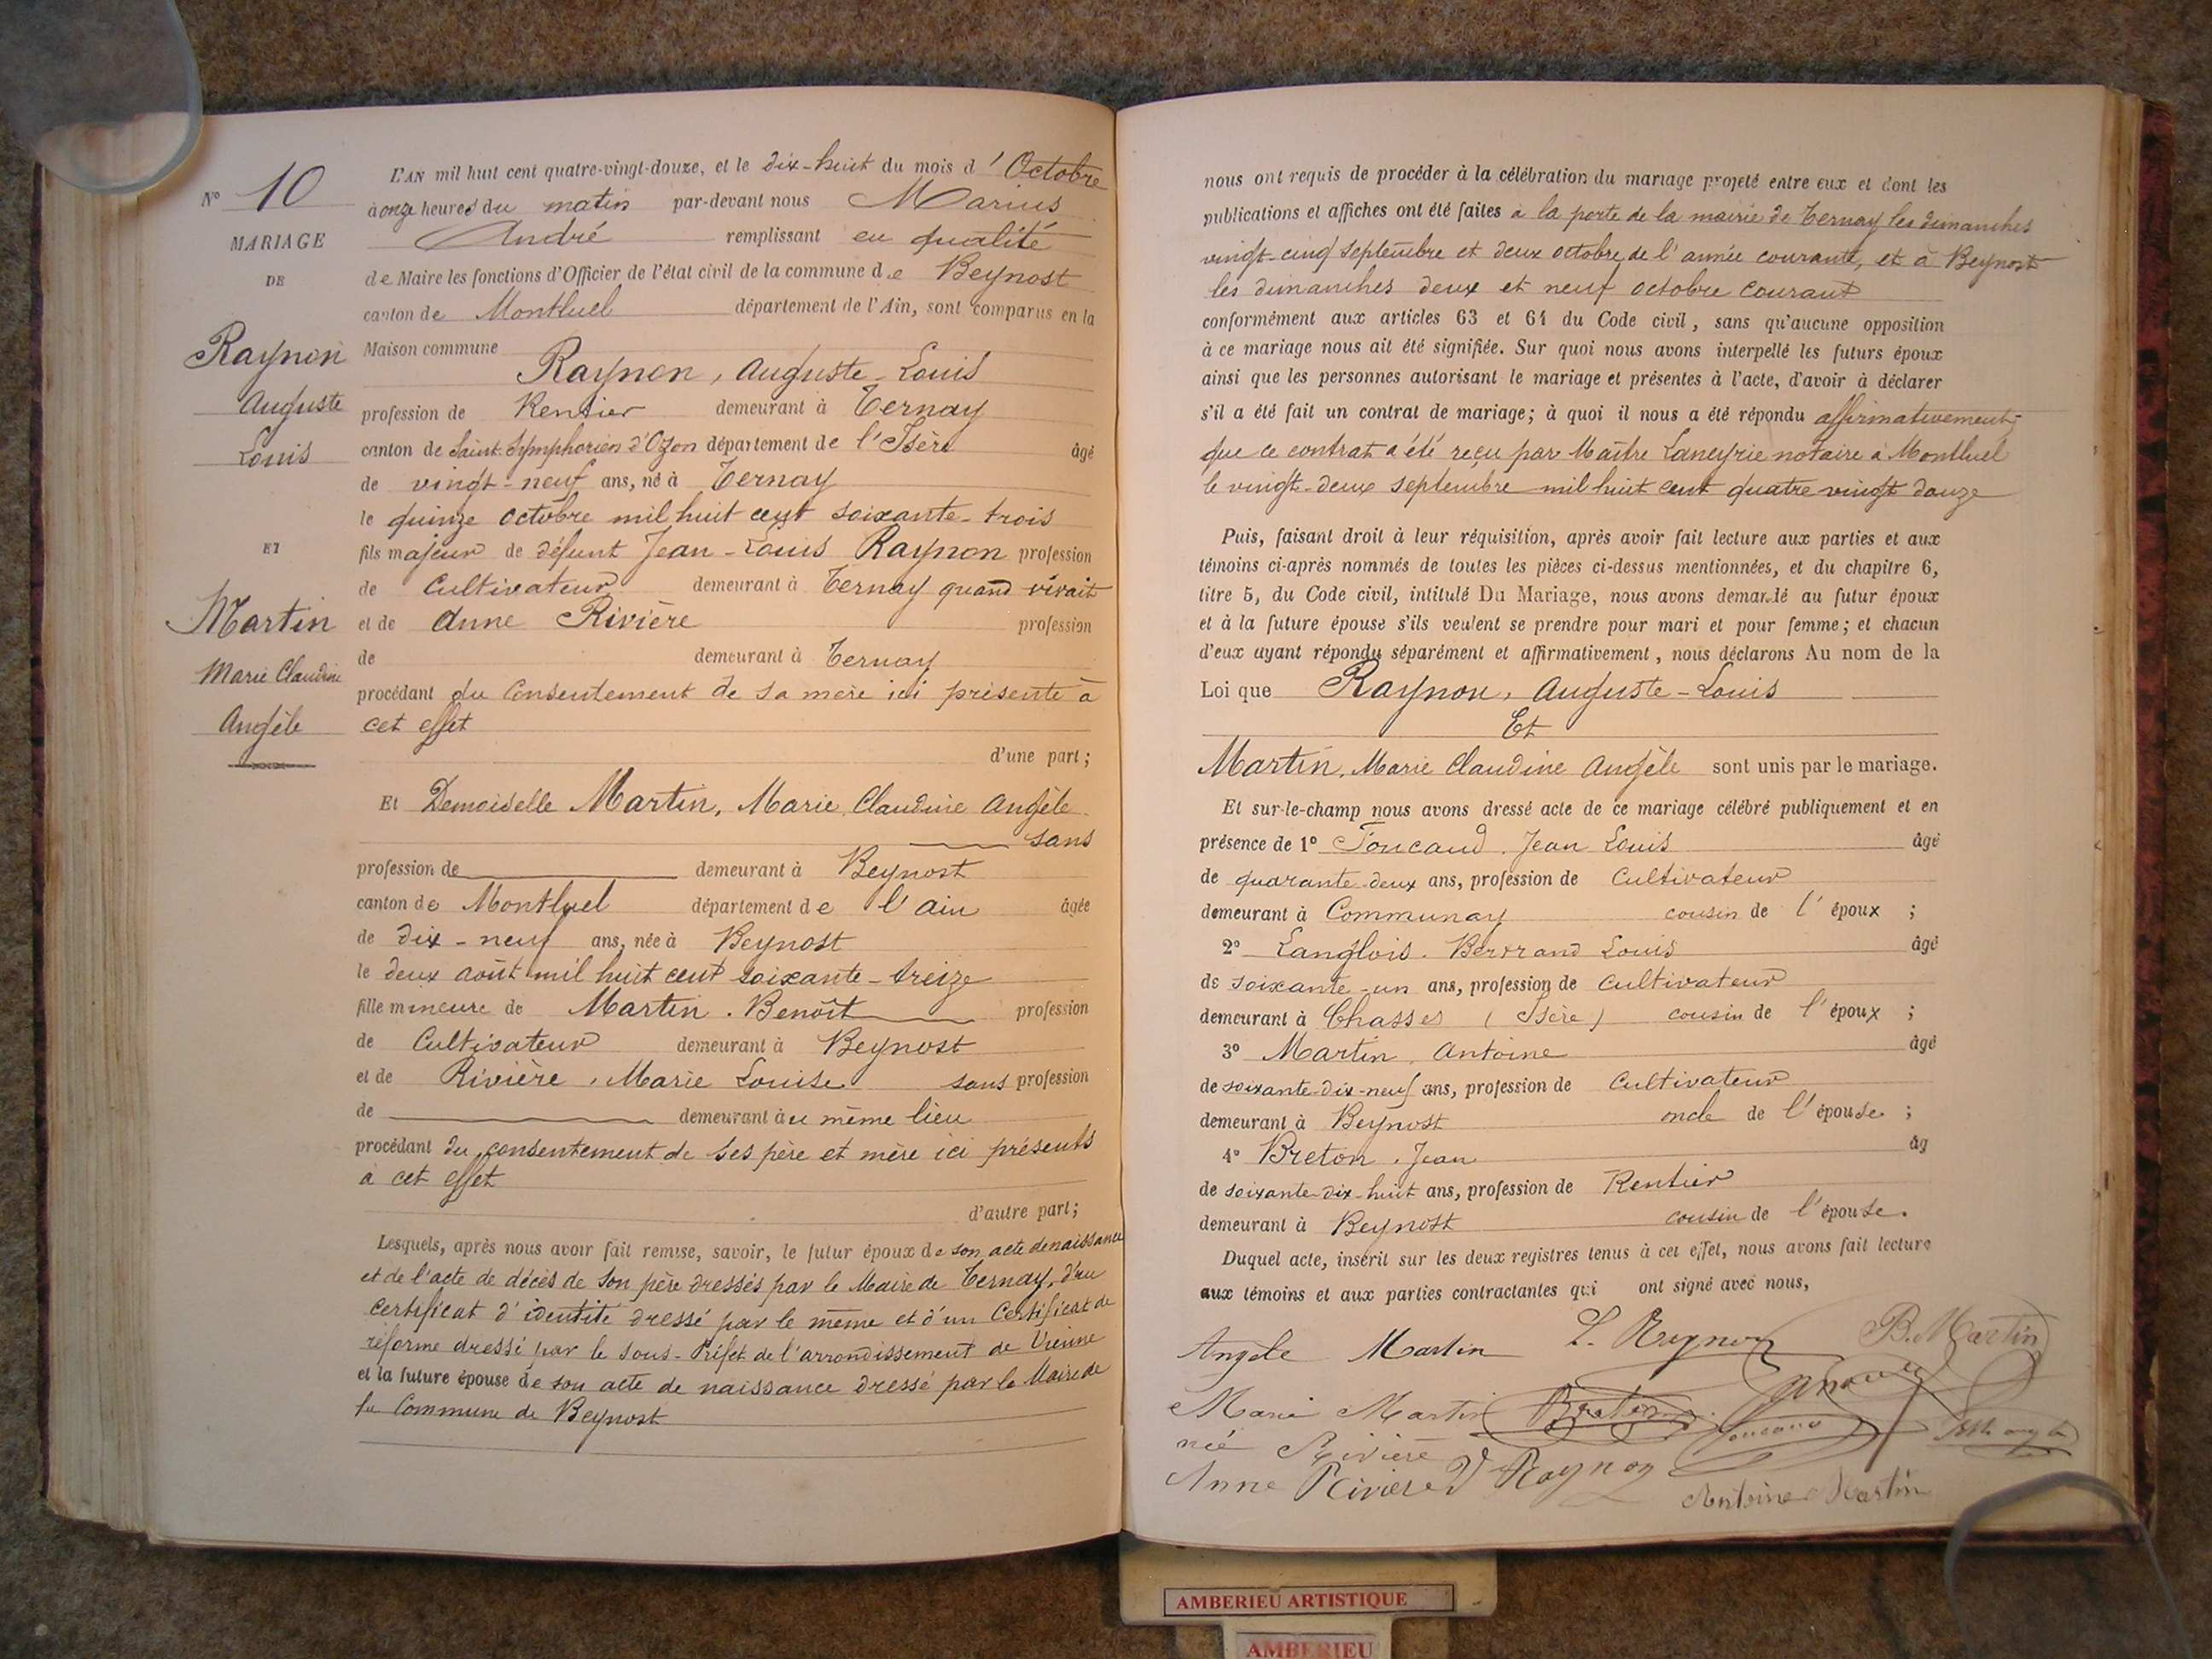 N° 10
MARIAGE
DE
Raynon
Auguste
Louis
ET
Martin
Marie Claudine
Angèle
L'AN mil huit cent quatre-vingt-douze, et le dix-huit du mois d'Octobre
à onze heures du matin par-devant nous Marius
André remplissant en qualité
de Maire les fonctions d'Officier de l'état civil de la commune de Beynost
canton de Montluel département de l'Ain, sont comparus en la
Maison commune
Raynon, Auguste-Louis
profession de Rentier demeurant à Ternay
canton de Saint-Symphorien d'Ozon département de l'Isère âgé
de vingt-neuf ans, né à Ternay
le quinze octobre mil huit cent soixante-trois
fils majeur de défunt Jean-Louis Raynon profession
de Cultivateur demeurant à Ternay quand vivait
et de Anne Rivière profession
de demeurant à Ternay
procédant du Consentement de sa mère ici présente à
cet effet
d'une part ;
Et Demoiselle Martin, Marie Claudine Angèle
sans
profession de demeurant à Beynost
canton de Montluel département de l'ain âgée
de dix-neuf ans, née à Beynost
le deux août mil huit cent soixante-treize
fille mineure de Martin. Benoît profession
de Cultivateur demeurant à Beynost
et de Rivière, Marie Louise sans profession
de demeurant au même lieu
procédant du consentement de ses père et mère ici présents
à cet effet
d'autre part ;
Lesquels, après nous avoir fait remise, savoir, le futur époux de son acte de naissance
et de l'acte de décès de son père dressés par le Maire de Ternay, d'un
certificat d'identité dressé par le même et d'un Certificat de
réforme dressé par le sous-Préfet de l'arrondissement de Vienne
et la future épouse de son acte de naissance dressé par le Maire de
la Commune de Beynost
nous ont requis de procéder à la célébration du mariage projeté entre eux et dont les
publications et affiches ont été faites à la porte de la mairie de Ternay les dimanches
vingt-cinq septembre et deux octobre de l'année courante, et à Beynost
les dimanches deux et neuf octobre courant
conformément aux articles 63 et 64 du Code civil, sans qu'aucune opposition
à ce mariage nous ait été signifiée. Sur quoi nous avons interpellé les futurs époux
ainsi que les personnes autorisant le mariage et présentes à l'acte, d'avoir à déclarer
s'il a été fait un contrat de mariage ; à quoi il nous a été répondu affirmativement,
que ce contrat a été reçu par Maître Laneyrie notaire à Montluel
le vingt-deux septembre mil huit cent quatre vingt douze
Puis, faisant droit à leur réquisition, après avoir fait lecture aux parties et aux
témoins ci-après nommés de toutes les pièces ci-dessus mentionnées, et du chapitre 6,
titre 5, du Code civil, intitulé Du Mariage, nous avons demandé au futur époux
et à la future épouse s'ils veulent se prendre pour mari et pour femme ; et chacun
d'eux ayant répondu séparément et affirmativement, nous déclarons Au nom de la
Loi que Raynon, Auguste-Louis
Et
Martin, Marie Claudine Angèle sont unis par le mariage.
Et sur-le-champ nous avons dressé acte de ce mariage célébré publiquement et en
présence de 1° Foucaud. Jean Louis âgé
de quarante-deux ans, profession de Cultivateur
demeurant à Communay cousin de l'époux ;
2° Langlois. Bertrand Louis âgé
de soixante-un ans, profession de Cultivateur
demeurant à Chasses (Isère) cousin de l'époux ;
3° Martin, Antoine âgé
de soixante-dix-neuf ans, profession de Cultivateur
demeurant à Beynost oncle de l'épouse ;
4° Breton. Jean âg
de soixante-dix-huit ans, profession de Rentier
demeurant à Beynost cousin de l'épouse.
Duquel acte, inscrit sur les deux registres tenus à cet effet, nous avons fait lecture
aux témoins et aux parties contractantes qui ont signé avec nous,
Angèle Martin L. Raynon B. Martin
Marie Martin Breton
née Rivière
Anne Rivière V Raynon Antoine Martin
AMBERIEU ARTISTIQUE
AMBERIEU